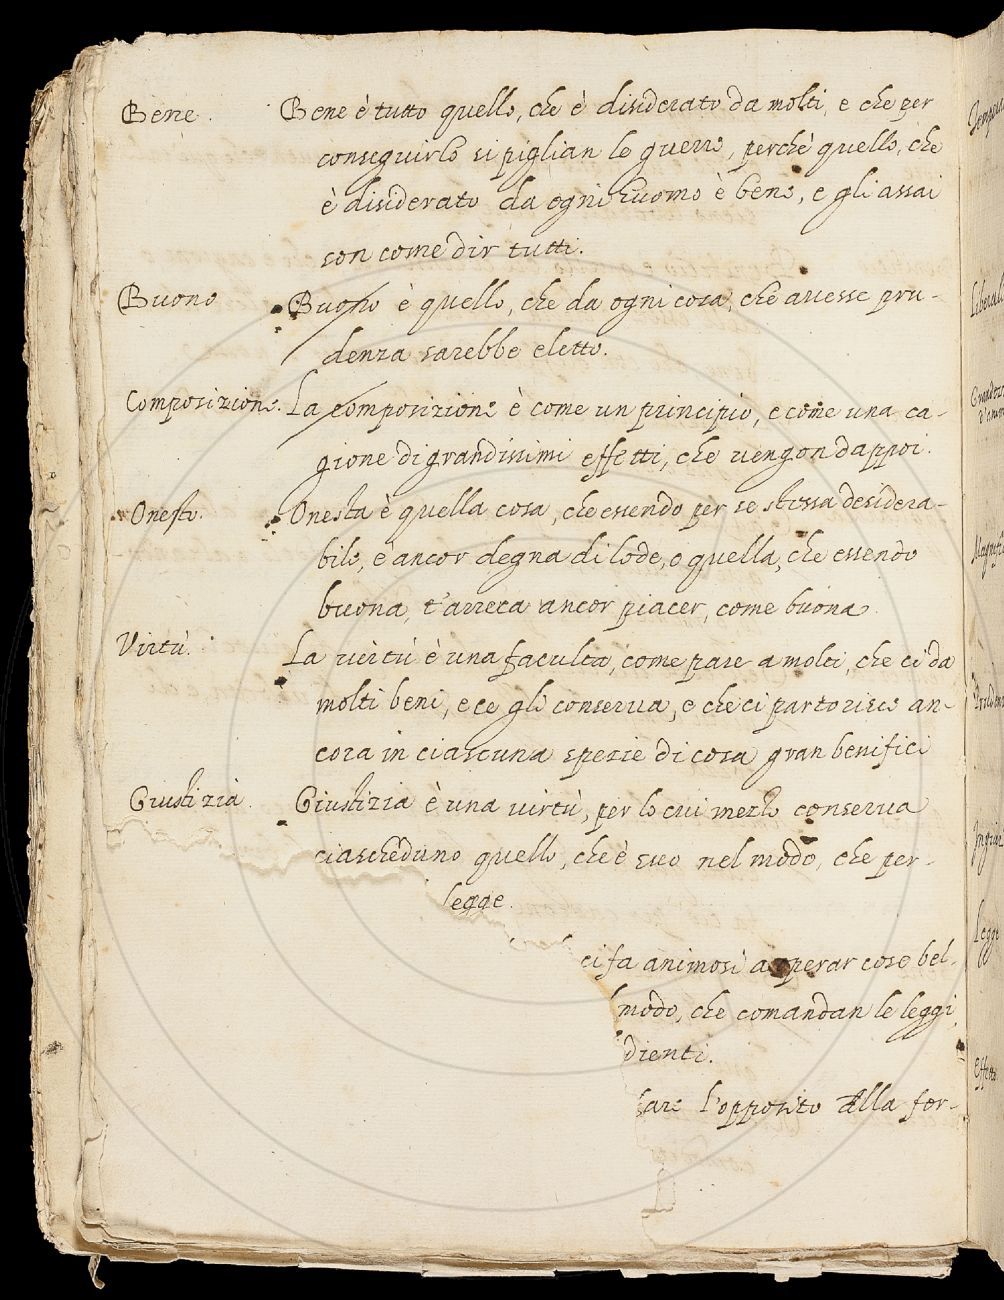 Bene. Bene è tutto quello, che è disiderato da molti, e che per
conseguirlo si piglian le guerre, perchè quello, che
è disiderato da ogni huomo è bene, e gli assai
son come dir tutti.
Buono Buono è quello, che da ogni cosa, che avesse pru-
denza sarebbe eletto.
Composizione. La composizione è come un principio, e come una ca-
gione di grandissimi effetti, che vengon dappoi.
Onesto. Onesta è quella cosa, che essendo per se stessa desidera-
bile, è ancor degna di lode, o quella, che essendo
buona, t'arreca ancor piacer, come buona.
Virtù. La virtù è una faculta, come pare a molti, che ci da
molti beni, e ce gli conserva, e che ci partorisce an-
cora in ciascuna spezie di cosa gran benifici
Giustizia. Giustizia è una virtù, per lo cui mezzo conserva
ciascheduno quello, che è suo nel modo, che per-
legge.
ci fa animosi a operar cose bel-
modo, che comandan le leggi
dienti.
l'opposito alla for-
Legge
Effetto